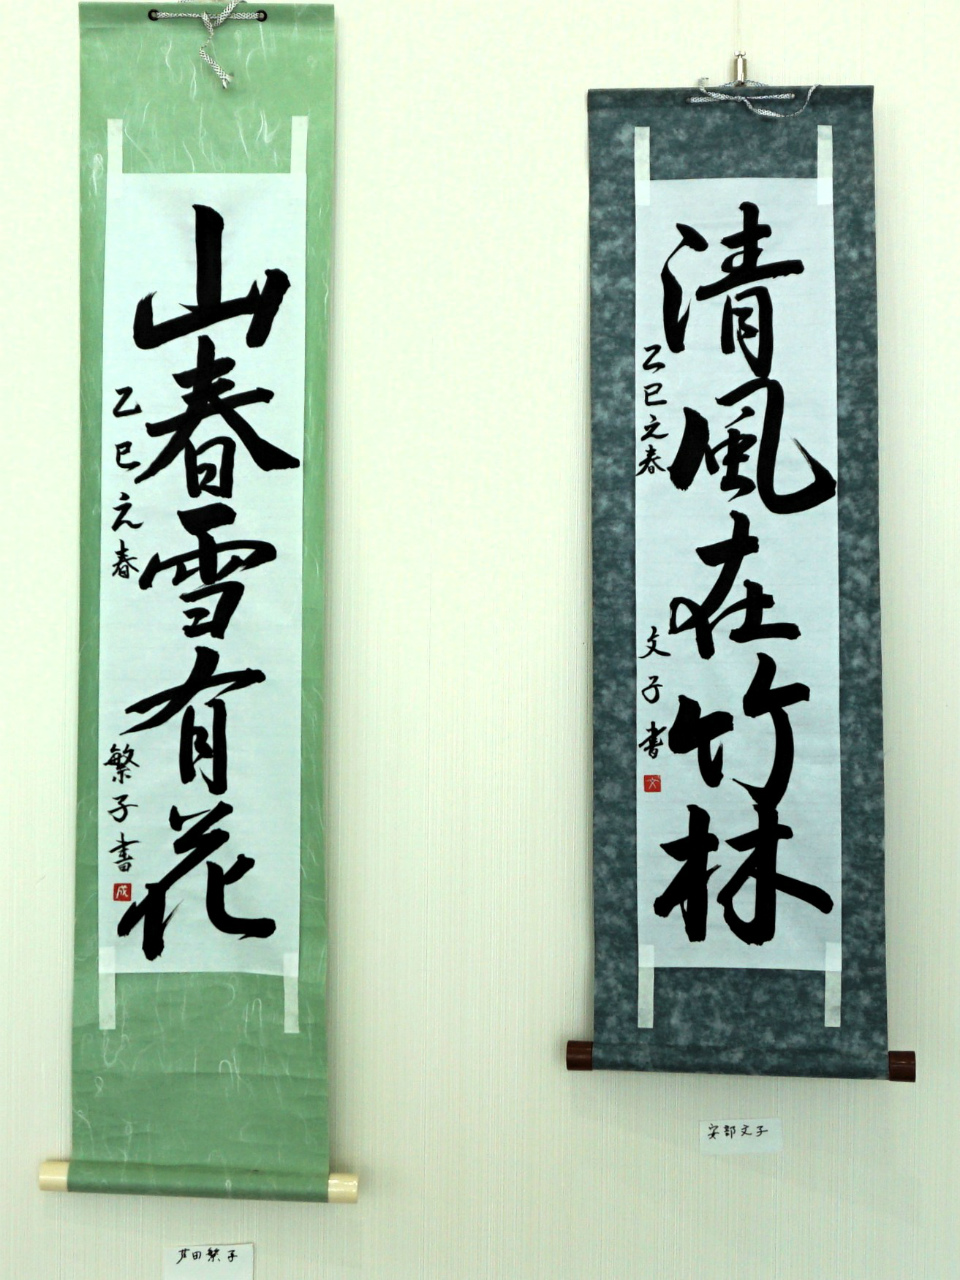 清風在竹林
乙巳元春
文子書
文
安部文子
山春雪有花
乙巳元春
繁子書
田繁子